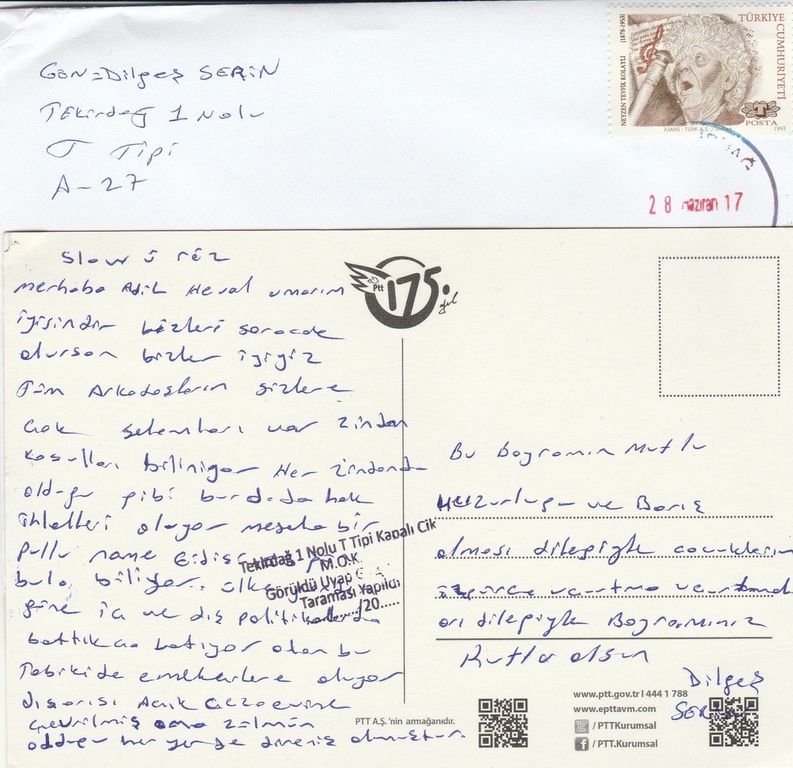 GÖN=Dilgeş SERİN
Tekirdağ 1 Nolu
T Tipi
A-27
TÜRKİYE CUMHURİYETİ
NEYZEN TEVFİK KOLAYLI (1878-1953)
POSTA
AJANS - TÜRK A.Ş.
1993
28 Haziran 17
Ptt 175. yıl
Slaw û rêz
merhaba Adil Heval umarım
iyisindir bizleri soracak
olursan bizler iyiyiz
Tüm Arkadaşların sizlere
çok selamları var zindan
koşulları biliniyor Her zindanda
olduğu gibi burdada hak
ihlalleri oluyor mesela bir
pullu name
bulabiliyor. ülke
göre iç ve dış politikalarda
battıkça batıyor olan bu
Tabikide emekçilere oluyor
dışarısı Açık cezaevine
çevrilmiş ama zulmün
olduğu her yerde direniş olmuştur.
Tekirdağ 1 Nolu T Tipi Kapalı Cik
M.O.K
Görüldü Uyap
Taraması Yapıldı
...../20.....
Bu Bayramın Mutlu
Huzurluğu ve Barış
olması dileğiyle çocukların
özgürce
dileğiyle Bayramınız
Kutlu olsun
Dilgeş
SERİN
PTT A.Ş.'nin armağanıdır.
www.ptt.gov.tr I 444 1 788
www.epttavm.com
/ PTTKurumsal
/ PTT.Kurumsal